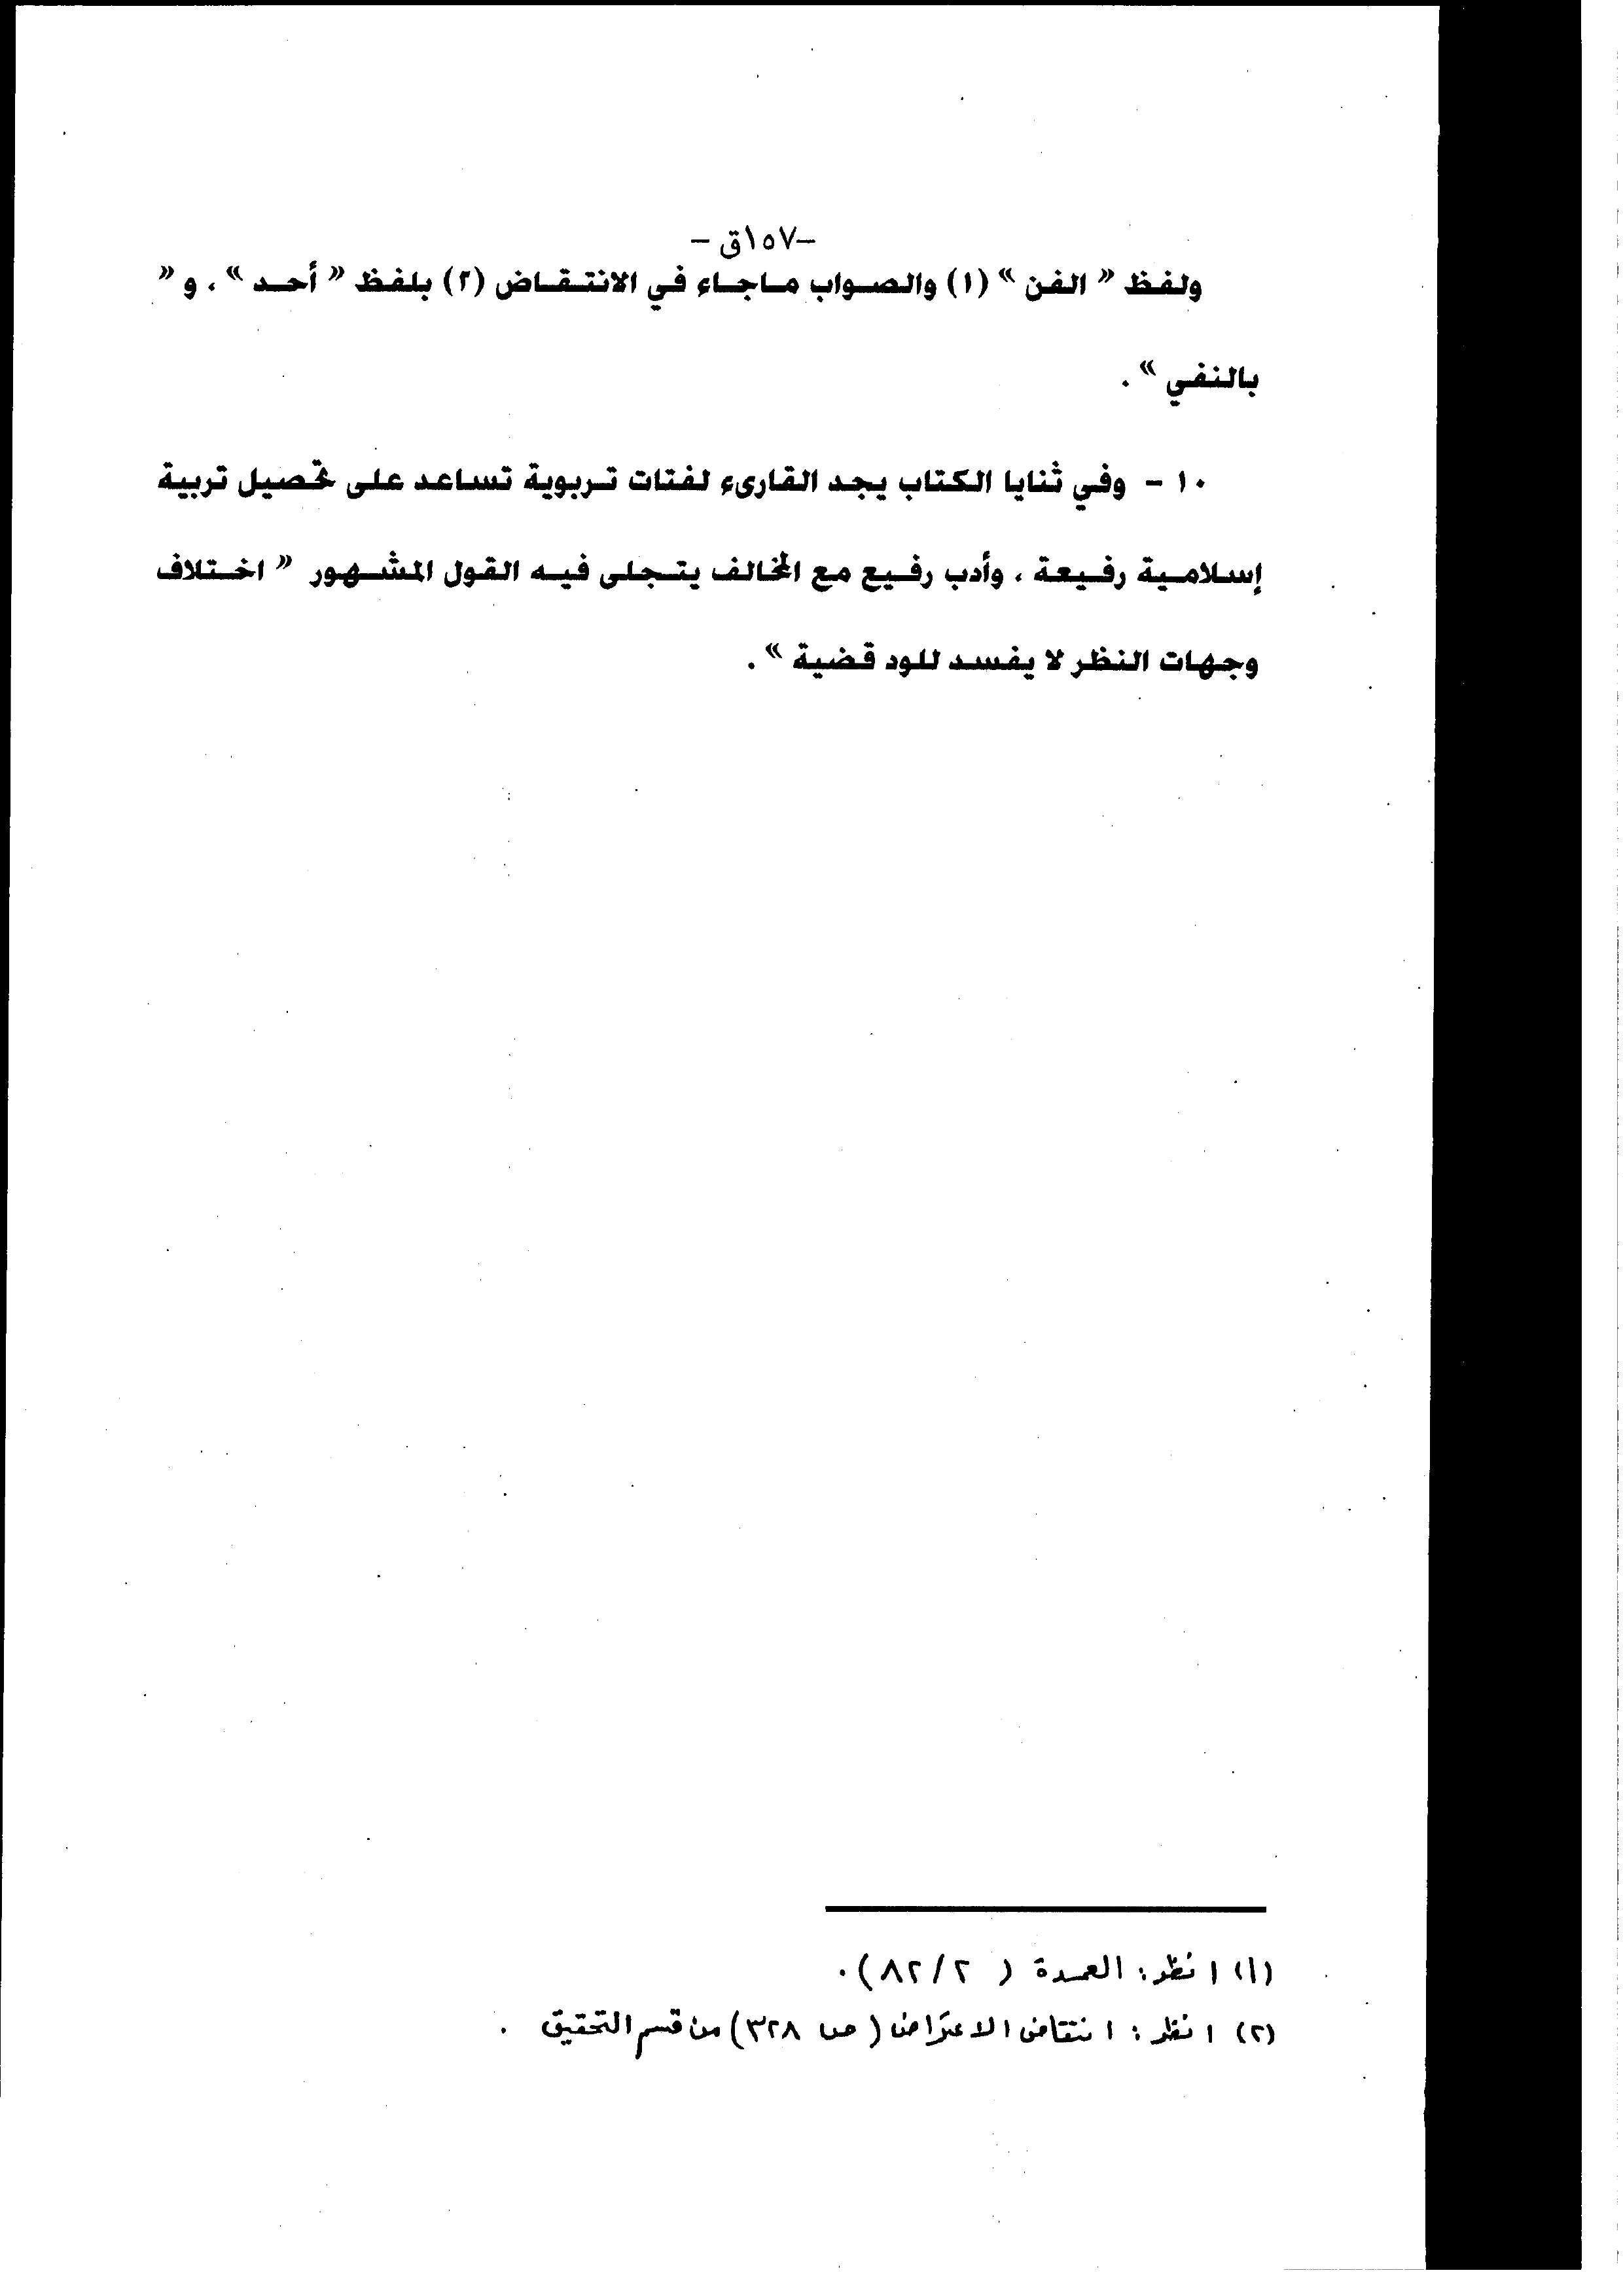 -١٥٧ق -
ولفظ « الفن » (١) والصواب ماجاء في الانتقاض (٢) بلفظ « أحد » ، و «
بالنفي » .
١٠ - وفي ثنايا الكتاب يجد القارىء لفتات تربوية تساعد على تحصيل تربية
إسلامية رفيعة ، وأدب رفيع مع المخالف يتجلى فيه القول المشهور « اختلاف
وجهات النظر لا يفسد للود قضية » .
(١) انظر : العمدة ( ٨٢/٢ ) .
(٢) انظر : انتقاض الاعتراض ( ص ٣٢٨ ) من قسم التحقيق .